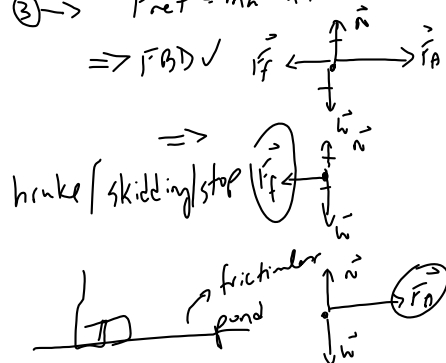 ③ → Fnet
N
=> FBD ✓ Ff FA
W
=> N
brake/skidding/stop Ff
W
frictionless N
pond FA
W